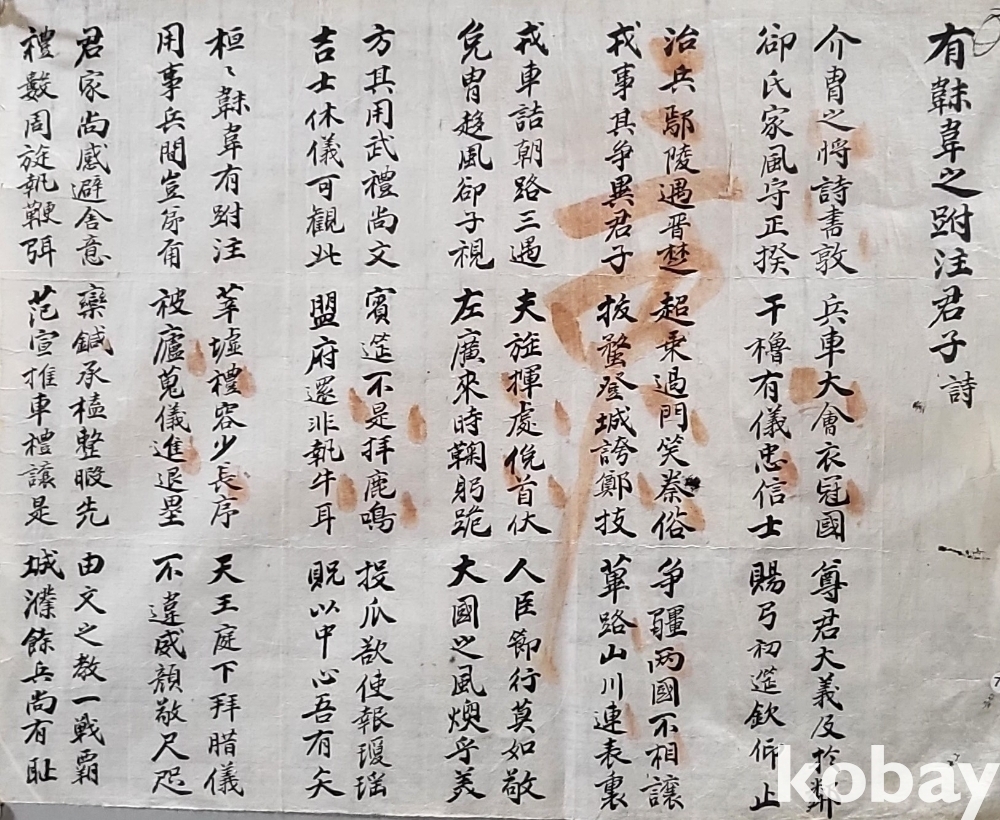 有韎韋之跗注君子 詩
介冑之將詩書敦 兵車大會衣冠國 尊君大義及於鄰
郤氏家風守正揆 干櫓有儀忠信士 賜弓初筵欽仰止
治兵鄢陵遇晋楚 超乘過門笑秦俗 爭疆両國不相讓
戎事其爭異君子 拔蝥登城誇鄭技 蓽路山川連表裏
戎車詰朝路三遇 夫旌揮處俛首伏 人臣節行莫如敬
免冑趍風郤子視 左廣來時鞠躬跪 大國之風煥乎美
方其用武禮尚文 賓筵不是拜鹿鳴 投瓜欲使報瓊瑤
吉士休儀可觀此 盟府還非執牛耳 貺以中心吾有矢
桓〻韎韋有跗注 莘墟禮容少長序 天王庭下拜腊儀
用事兵間豈 被廬蒐儀進退塁 不違威顔敬尺咫
君家尚感避舍意 欒鍼承榼整暇先 由文之教一戰霸
禮數周旋執鞭弭 范宣推車禮讓是 城濮餘兵尚有耻
kobay